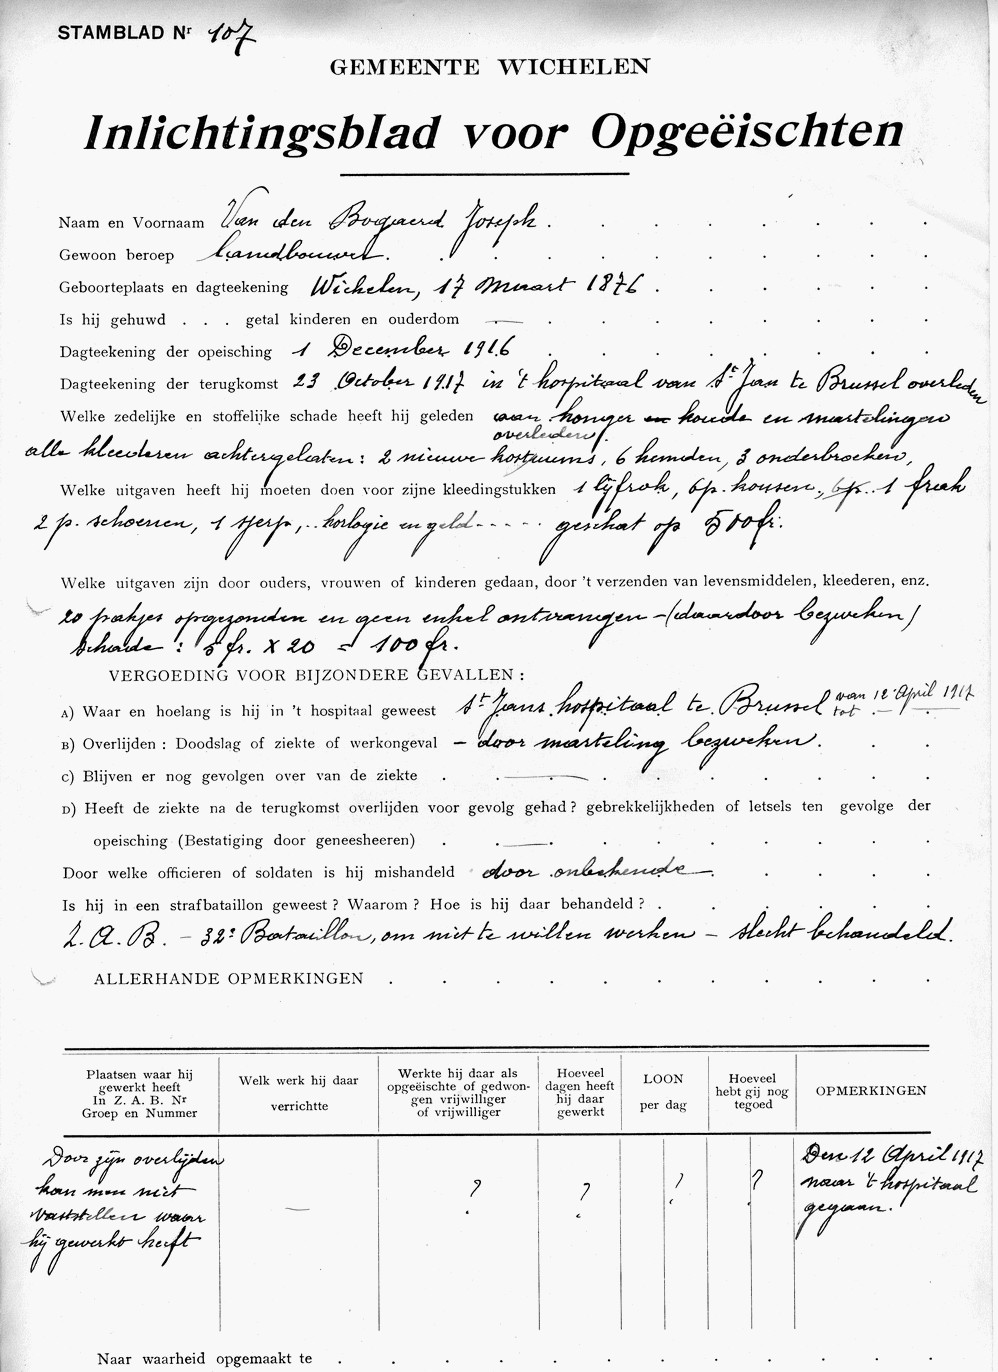 STAMBLAD Nr 107
GEMEENTE WICHELEN
Inlichtingsblad voor Opgeëischten
Naam en Voornaam Van den Bogaerd Joseph.
Gewoon beroep Landbouwer.
Geboorteplaats en dagteekening Wichelen, 17 Maart 1876
Is hij gehuwd . . . getal kinderen en ouderdom —
Dagteekening der opeisching 1 December 1916
Dagteekening der terugkomst 23 October 1917 in 't hospitaal van St Jan te Brussel overleden
Welke zedelijke en stoffelijke schade heeft hij geleden aan honger en koude en martelingen
overleden.
alle kleederen achtergelaten: 2 nieuwe kostuums, 6 hemden, 3 onderbroeken,
Welke uitgaven heeft hij moeten doen voor zijne kleedingstukken 1 lijfrok, 6p. kousen, 6p. 1 frak
2 p. schoenen, 1 sjerp, horlogie en geld - - - - - geschat op 500 fr.
Welke uitgaven zijn door ouders, vrouwen of kinderen gedaan, door 't verzenden van levensmiddelen, kleederen, enz.
20 pakjes opgezonden en geen enkel ontvangen – (daardoor bezweken)
Schade : 5 fr. X 20 = 100 fr.
VERGOEDING VOOR BIJZONDERE GEVALLEN :
A) Waar en hoelang is hij in 't hospitaal geweest St Jans hospitaal te Brussel van 12 April 1917
tot . – .
B) Overlijden : Doodslag of ziekte of werkongeval – door marteling bezweken.
C) Blijven er nog gevolgen over van de ziekte . —
D) Heeft de ziekte na de terugkomst overlijden voor gevolg gehad ? gebrekkelijkheden of letsels ten gevolge der
opeisching (Bestatiging door geneesheeren) . —
Door welke officieren of soldaten is hij mishandeld door onbekende —
Is hij in een strafbataillon geweest ? Waarom ? Hoe is hij daar behandeld ? .
Z. A. B. – 32e Bataillon, om niet te willen werken – slecht behandeld.
ALLERHANDE OPMERKINGEN
Plaatsen waar hij
gewerkt heeft
In Z. A. B. Nr
Groep en Nummer
Welk werk hij daar
verrichtte
Werkte hij daar als
opgeëischte of gedwon-
gen vrijwilliger
of vrijwilliger
Hoeveel
dagen heeft
hij daar
gewerkt
LOON
per dag
Hoeveel
hebt gij nog
tegoed
OPMERKINGEN
Door zijn overlijden
kan men niet
vaststellen waar
hij gewerkt heeft
—
?
?
?
?
Den 12 April 1917
naar 't hospitaal
gegaan.
Naar waarheid opgemaakt te